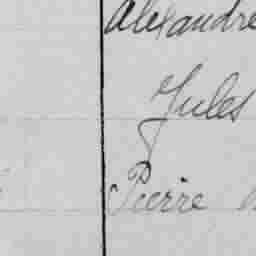 Alexandre
Jules
Pierre